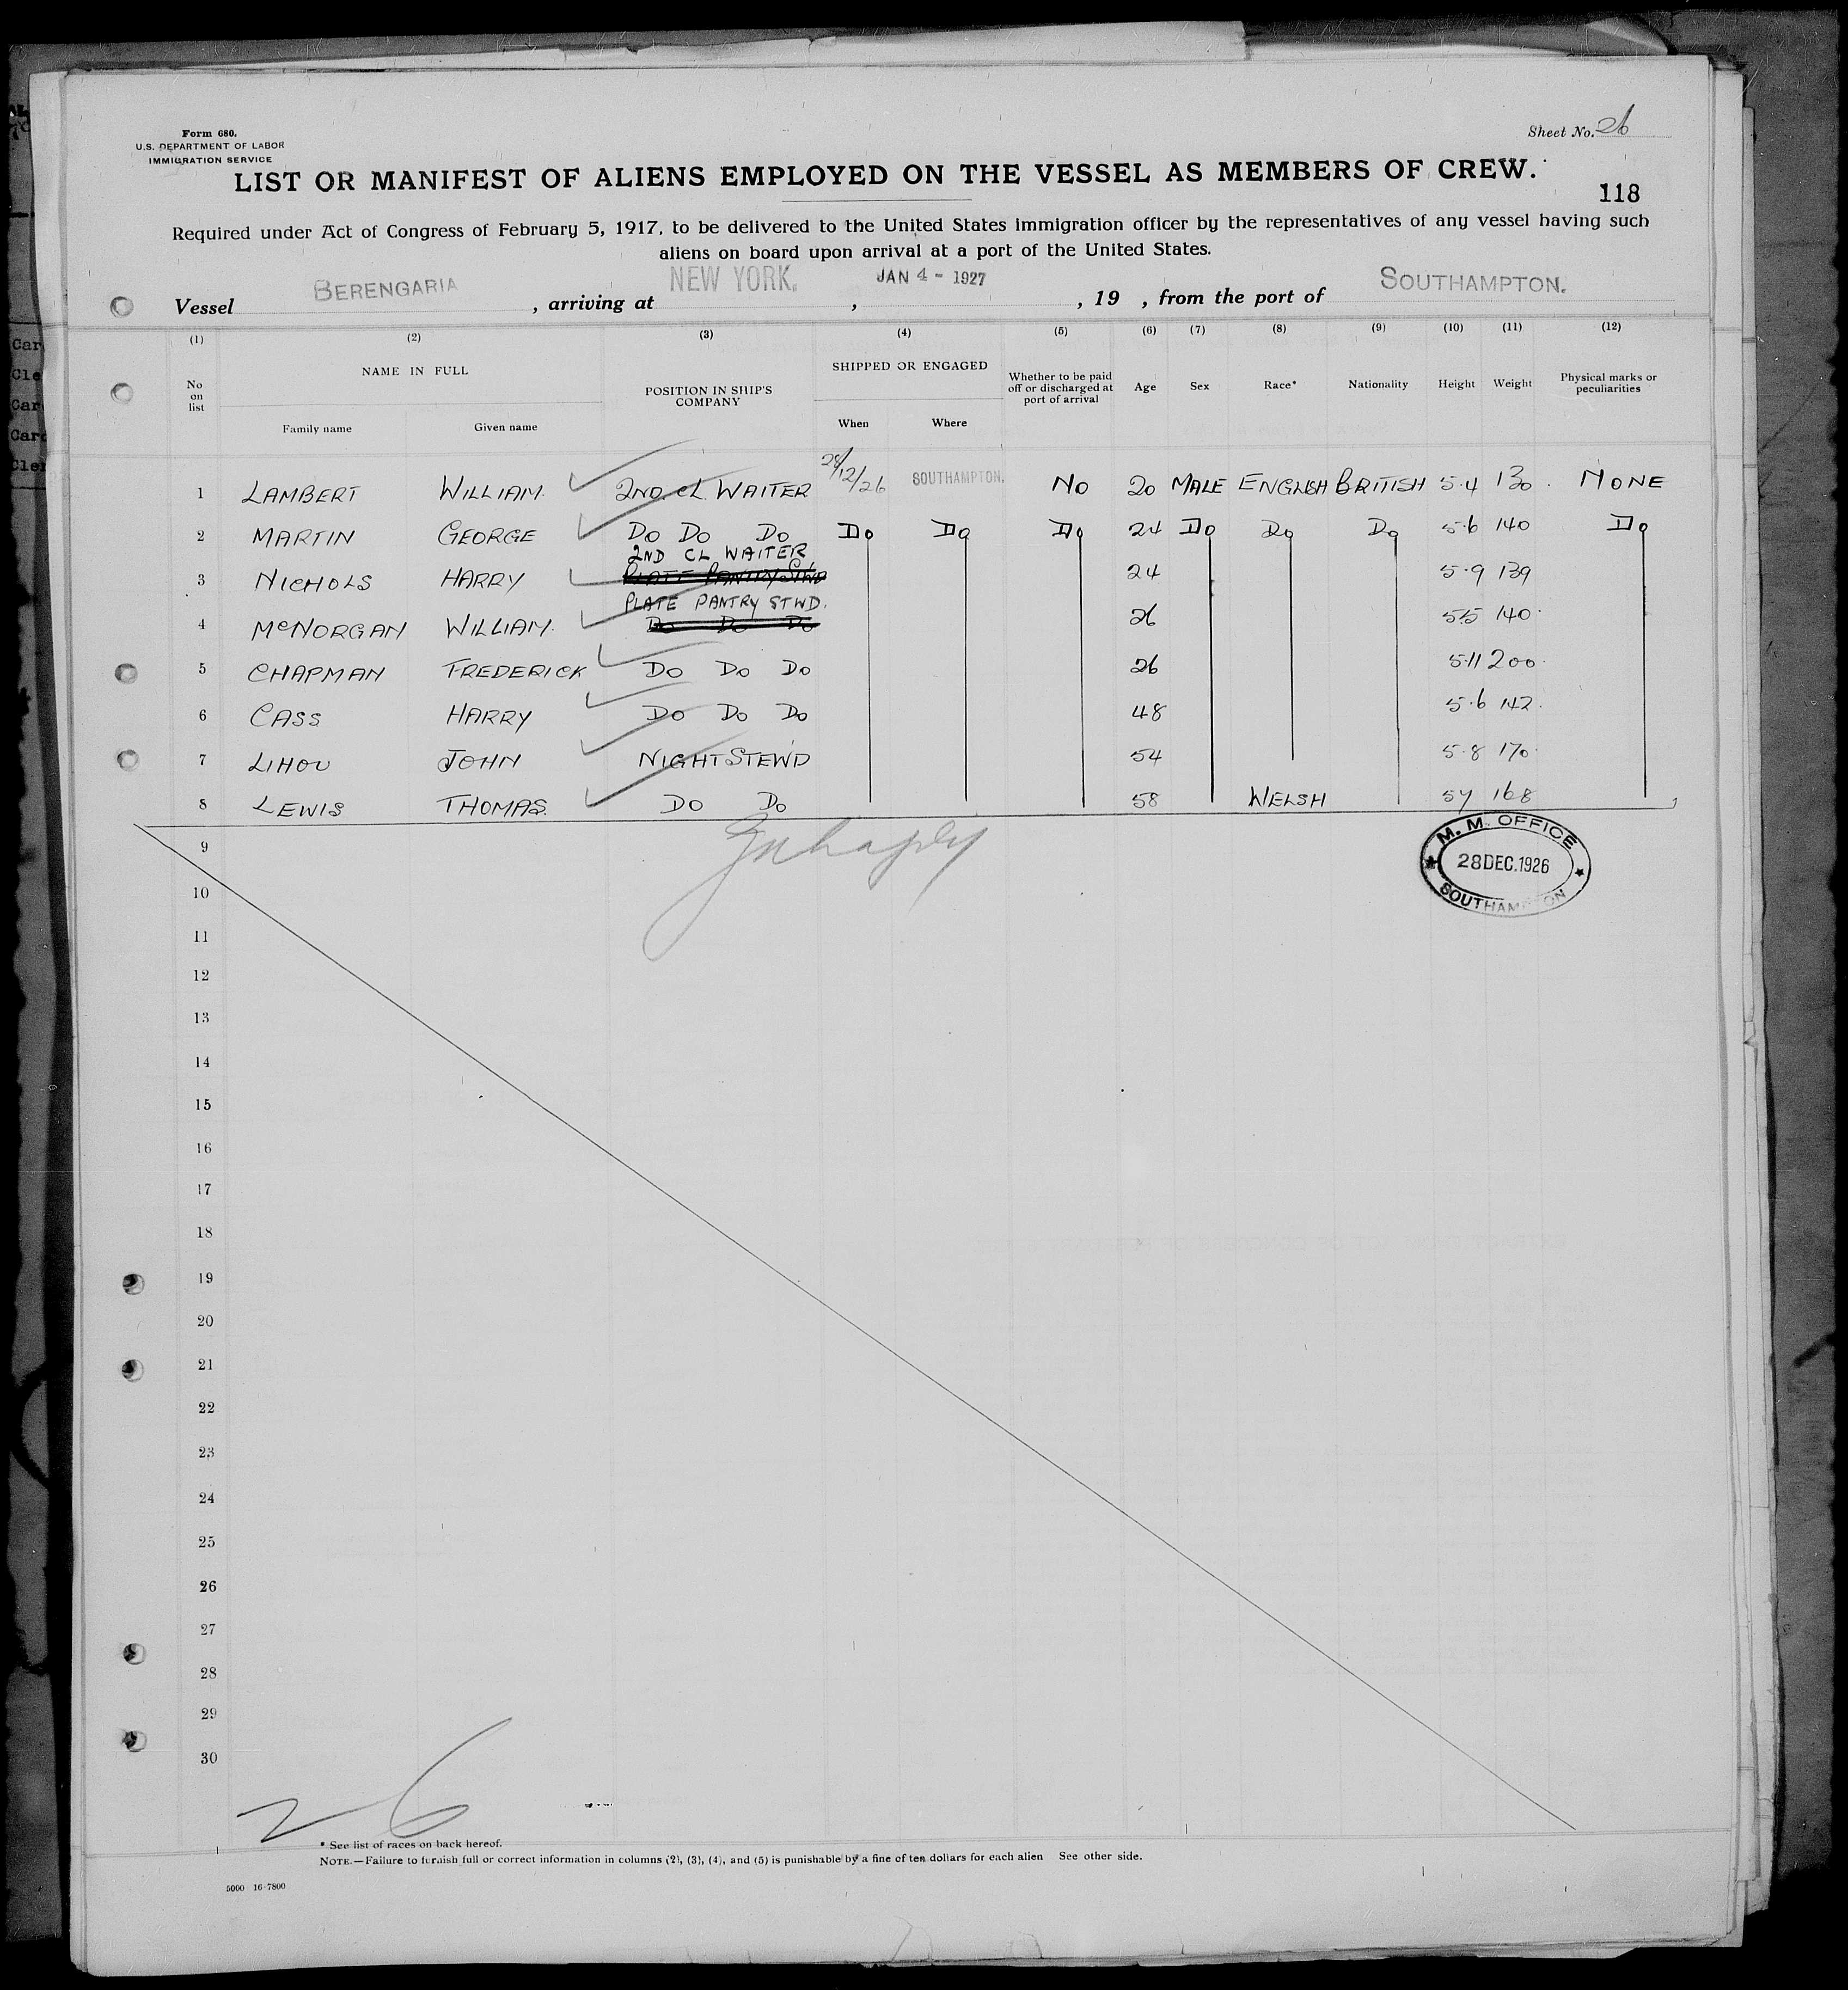 Form 680.
U.S. DEPARTMENT OF LABOR
IMMIGRATION SERVICE
Sheet No. 26
LIST OR MANIFEST OF ALIENS EMPLOYED ON THE VESSEL AS MEMBERS OF CREW.
118
Required under Act of Congress of February 5, 1917, to be delivered to the United States immigration officer by the representatives of any vessel having such
aliens on board upon arrival at a port of the United States.
Vessel BERENGARIA , arriving at NEW YORK. , JAN 4 - 1927 , 19 , from the port of SOUTHAMPTON.
(1) (2) (3) (4) (5) (6) (7) (8) (9) (10) (11) (12)
No on list NAME IN FULL Family name Given name POSITION IN SHIP'S COMPANY SHIPPED OR ENGAGED When Where Whether to be paid off or discharged at port of arrival Age Sex Race* Nationality Height Weight Physical marks or peculiarities
1 LAMBERT WILLIAM. 2ND CL WAITER 28/12/26 SOUTHAMPTON. NO 20 MALE ENGLISH BRITISH 5.4 130. NONE
2 MARTIN GEORGE DO DO DO DO DO DO 24 DO DO DO 5.6 140 DO
2ND CL WAITER
3 NICHOLS HARRY PLATE PANTRY STWD 24 5.9 139
PLATE PANTRY STWD.
4 McNORGAN WILLIAM. DO DO DO 26 5.5 140
5 CHAPMAN FREDERICK DO DO DO 26 5.11 200
6 CASS HARRY DO DO DO 48 5.6 142.
7 LIHOU JOHN NIGHT STEWD 54 5.8 170
8 LEWIS THOMAS. DO DO 58 WELSH 5.7 168
M. M. OFFICE
28 DEC. 1926
SOUTHAMPTON
9
10
11
12
13
14
15
16
17
18
19
20
21
22
23
24
25
26
27
28
29
30
26
* See list of races on back hereof.
NOTE.—Failure to furnish full or correct information in columns (2), (3), (4), and (5) is punishable by a fine of ten dollars for each alien See other side.
5000 16-7800